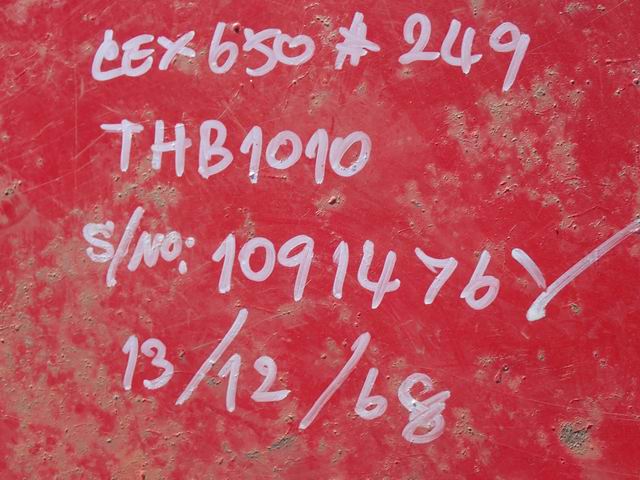 CEX650 # 249
THB1010
S/NO: 1091476 ✓
13/12/68